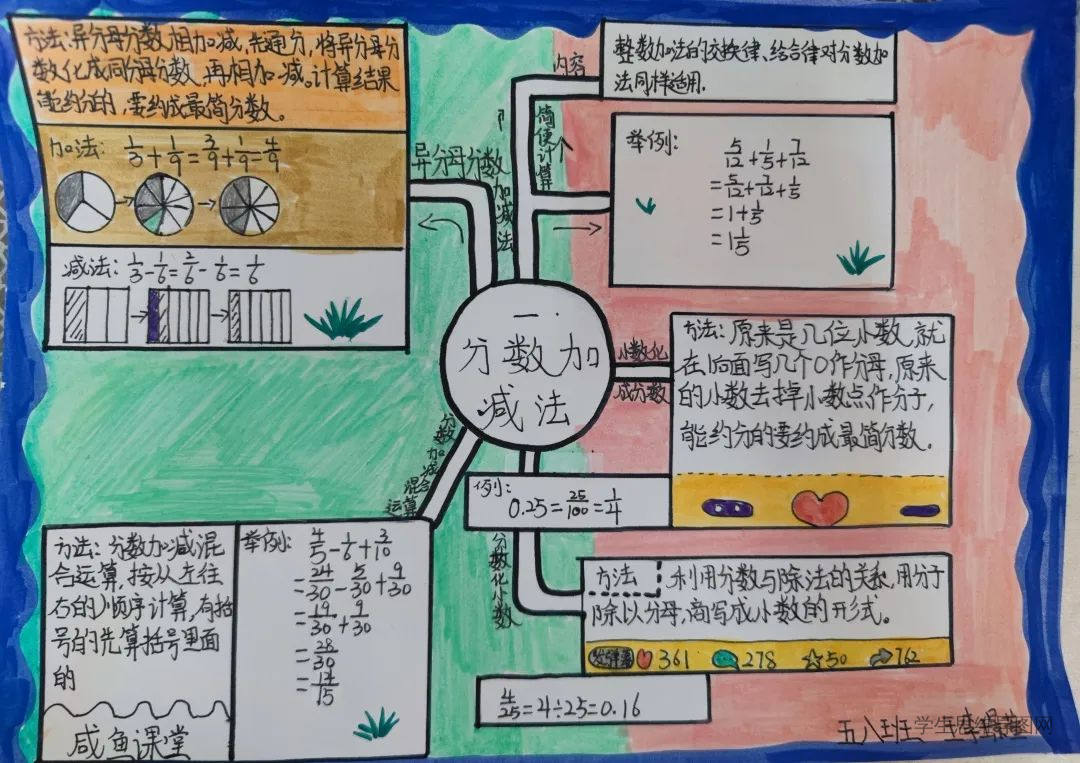 方法:异分母分数相加减,先通分,将异分母分
数化成同分母分数,再相加减。计算结果
能约分的,要约成最简分数。
加法: 1/3+1/9=3/9+1/9=4/9
减法: 1/3-1/6=2/6-1/6=1/6
异分母分数
加减法
内容
简便计算
整数加法的交换律、结合律对分数加
法同样适用.
举例:
5/12+1/5+7/12
=5/12+7/12+1/5
=1+1/5
=1 1/5
一.
分数加
减法
小数化
成分数
方法:原来是几位小数,就
在1后面写几个0作分母,原来
的小数去掉小数点作分子,
能约分的要约成最简分数.
例:
0.25=25/100=1/4
分数化小数
方法 利用分数与除法的关系,用分子
除以分母,商写成小数的形式。
361 278 50 762
4/25=4÷25=0.16
分数加减混合
运算
方法:分数加减混
合运算,按从左往
右的顺序计算,有括
号的先算括号里面
的
咸鱼课堂
举例:
4/5-1/6+3/10
=24/30-5/30+9/30
=19/30+9/30
=28/30
=14/15
五八班